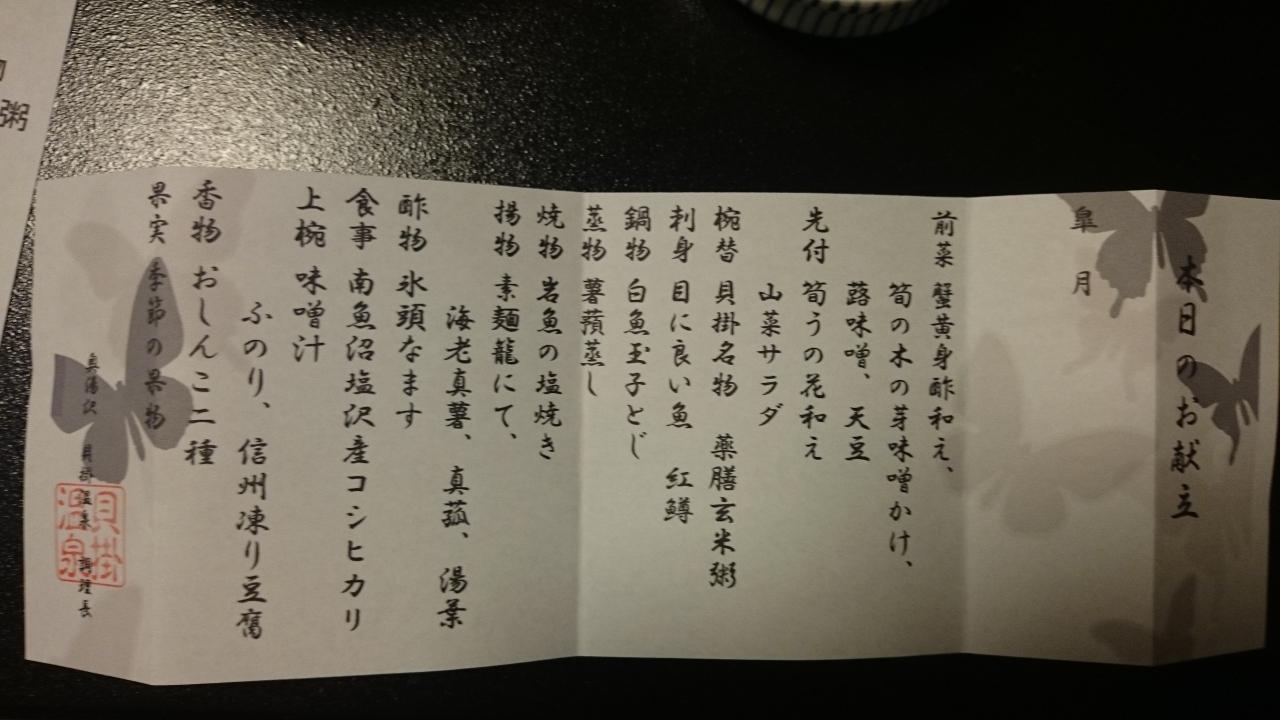 本日のお献立
皐月
前菜 蟹黄身酢和え、
筍の木の芽味噌かけ、
蕗味噌、天豆
先付 筍うの花和え
山菜サラダ
椀替 貝掛名物 薬膳玄米粥
刺身 目に良い魚 紅鱒
鍋物 白魚玉子とじ
蒸物 薯蕷蒸し
焼物 岩魚の塩焼き
揚物 素麺籠にて、
海老真薯、真菰、湯葉
酢物 氷頭なます
食事 南魚沼塩沢産コシヒカリ
上椀 味噌汁
ふのり、信州凍り豆腐
香物 おしんこ二種
果実 季節の果物
奥湯沢 貝掛温泉 調理長
貝掛
温泉
粥